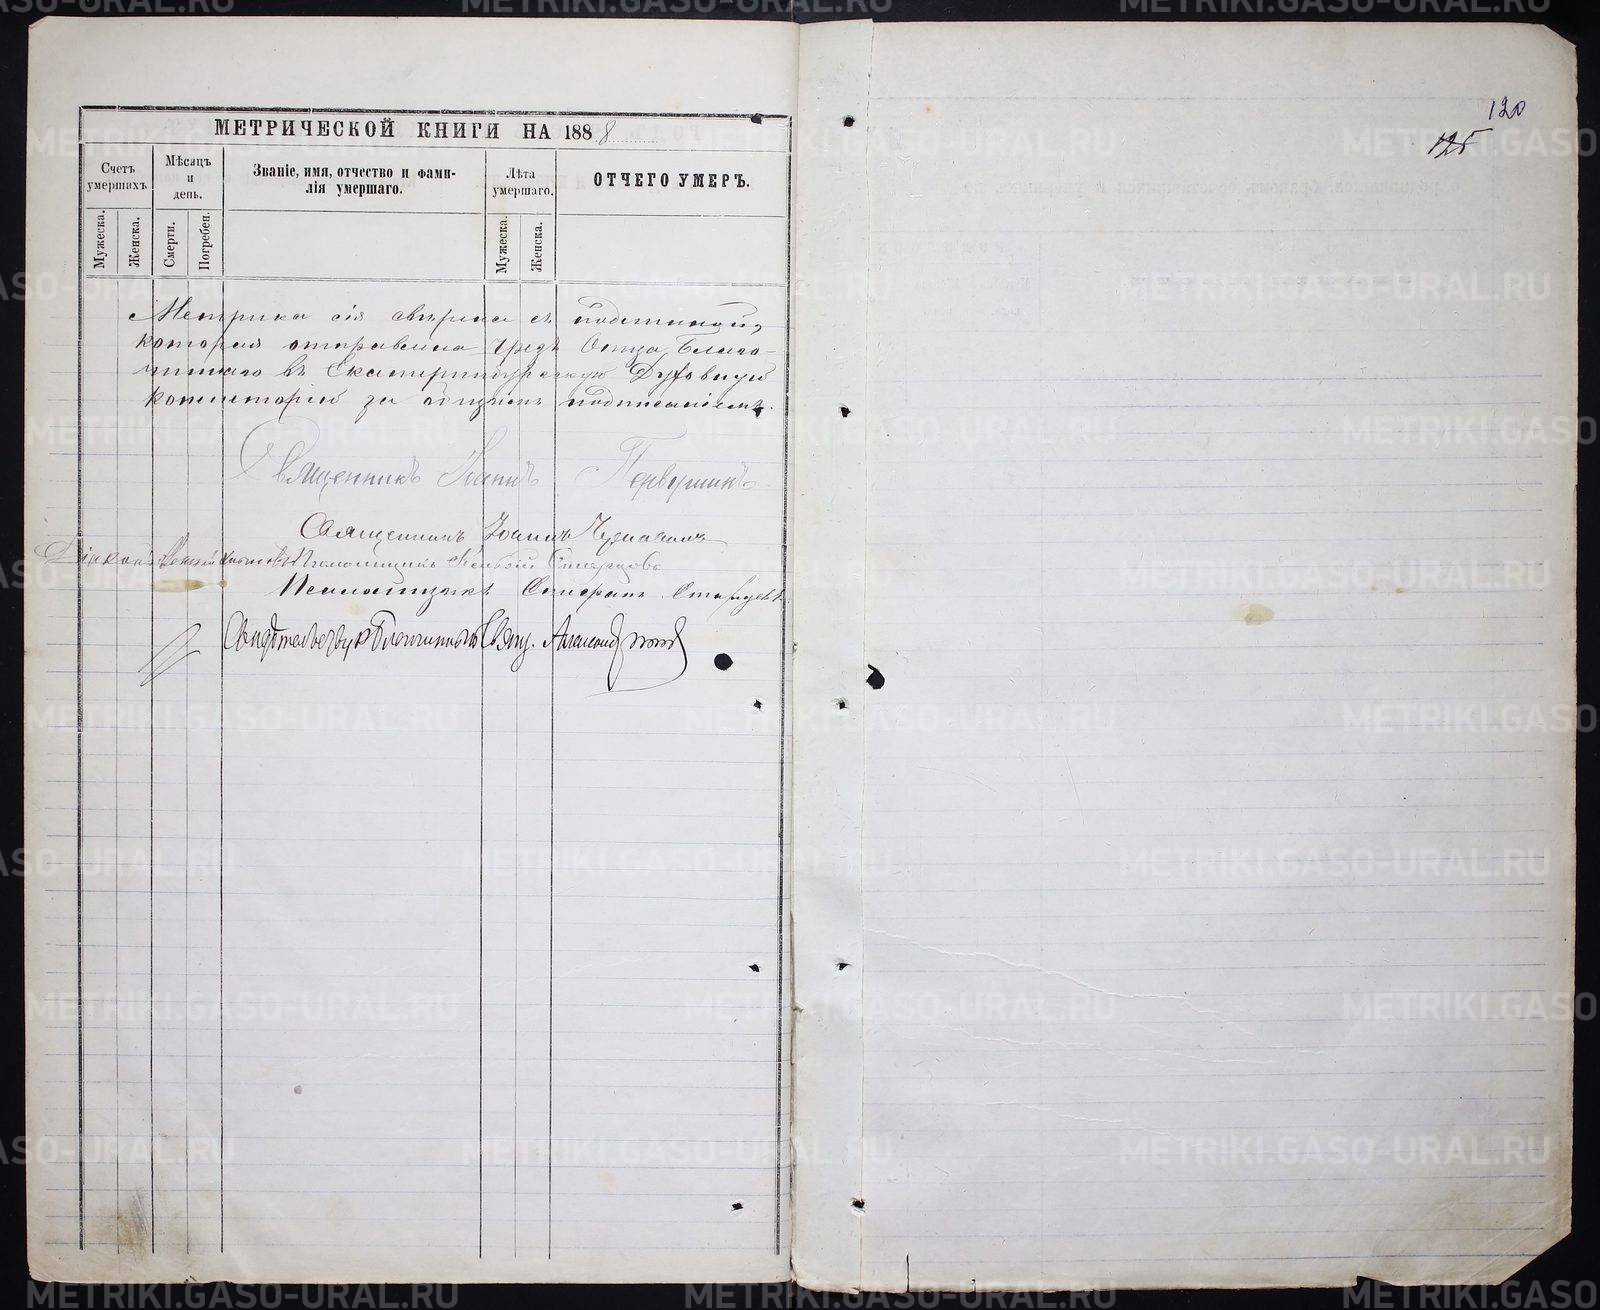 МЕТРИЧЕСКОЙ КНИГИ НА 1888
Счетъ умершихъ
Мѣсяцъ и день.
Званіе, имя, отчество и фами-
лія умершаго.
Лѣта умершаго.
ОТЧЕГО УМЕРЪ.
Мужеска.
Женска.
Смерти.
Погребен.
Мужеска.
Женска.
Метрика сія свѣрена съ подлинной,
которая отправлена чрезъ Отца Благо-
чиннаго въ Екатеринбургскую Духовную
консисторію за общимъ подписаніемъ.
Священникъ Іоаннъ Первушинъ
Священникъ Іоаннъ
Діаконъ Псаломщикъ
Псаломщикъ Старцевъ
Свидѣтельствую Благочинный Свящ.
120
125
METRIKI.GASO-URAL.RU